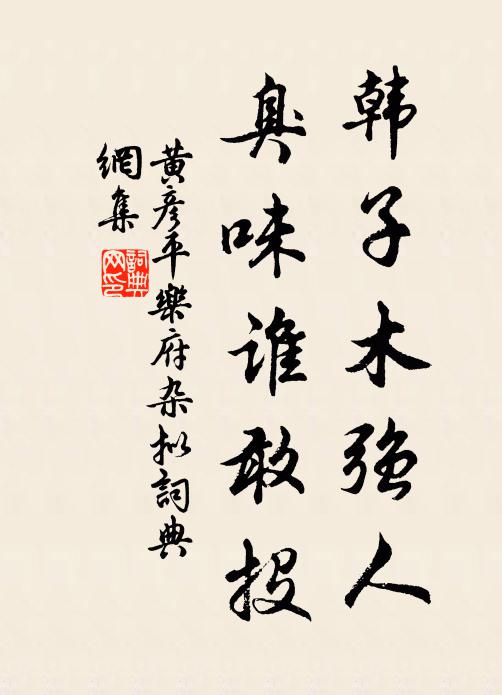 韩子木强人
臭味谁敢投
黄彦平樂府杂拟詞典
網集
詞典网印